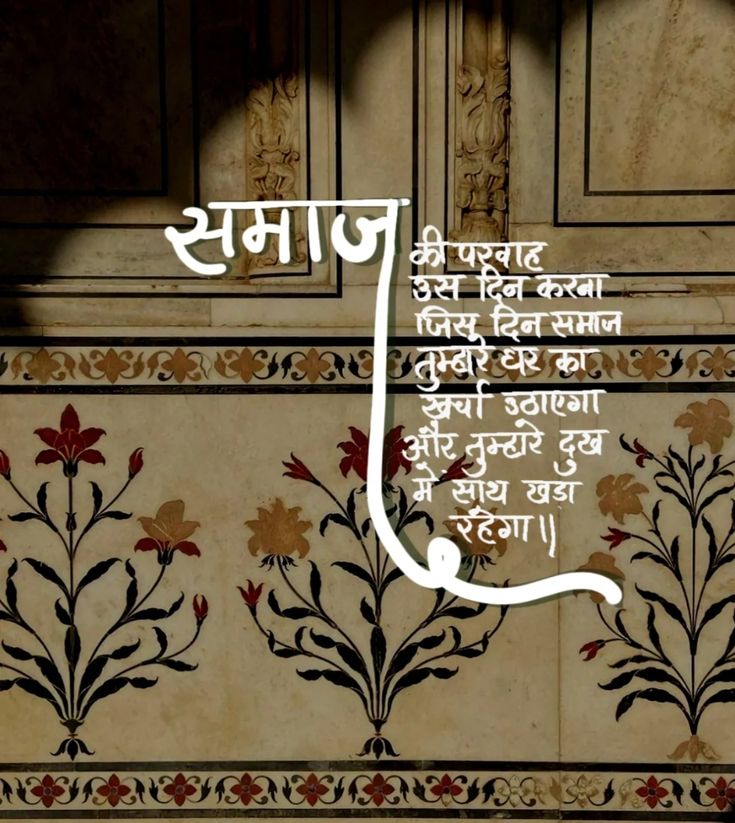 समाज
की परवाह
उस दिन करना
जिस दिन समाज
तुम्हारे घर का
खर्चा उठाएगा
और तुम्हारे दुख
में साथ खड़ा
रहेगा॥